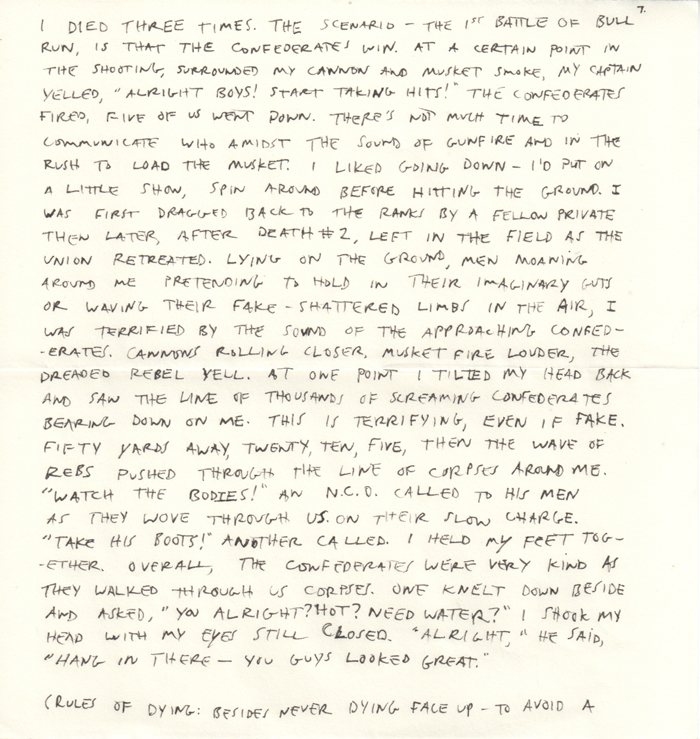 7.
I DIED THREE TIMES. THE SCENARIO - THE 1ST BATTLE OF BULL
RUN, IS THAT THE CONFEDERATES WIN. AT A CERTAIN POINT IN
THE SHOOTING, SURROUNDED MY CANNON AND MUSKET SMOKE, MY CAPTAIN
YELLED, "ALRIGHT BOYS! START TAKING HITS!" THE CONFEDERATES
FIRED, FIVE OF US WENT DOWN. THERE'S NOT MUCH TIME TO
COMMUNICATE WHO AMIDST THE SOUND OF GUNFIRE AND IN THE
RUSH TO LOAD THE MUSKET. I LIKED GOING DOWN - I'D PUT ON
A LITTLE SHOW, SPIN AROUND BEFORE HITTING THE GROUND. I
WAS FIRST DRAGGED BACK TO THE RANKS BY A FELLOW PRIVATE
THEN LATER, AFTER DEATH #2, LEFT IN THE FIELD AS THE
UNION RETREATED. LYING ON THE GROUND, MEN MOANING
AROUND ME PRETENDING TO HOLD IN THEIR IMAGINARY GUTS
OR WAVING THEIR FAKE-SHATTERED LIMBS IN THE AIR, I
WAS TERRIFIED BY THE SOUND OF THE APPROACHING CONFED-
-ERATES. CANNONS ROLLING CLOSER, MUSKET FIRE LOUDER, THE
DREADED REBEL YELL. AT ONE POINT I TILTED MY HEAD BACK
AND SAW THE LINE OF THOUSANDS OF SCREAMING CONFEDERATES
BEARING DOWN ON ME. THIS IS TERRIFYING, EVEN IF FAKE.
FIFTY YARDS AWAY, TWENTY, TEN, FIVE, THEN THE WAVE OF
REBS PUSHED THROUGH THE LINE OF CORPSES AROUND ME.
"WATCH THE BODIES!" AN N.C.O. CALLED TO HIS MEN
AS THEY WOVE THROUGH US ON THEIR SLOW CHARGE.
"TAKE HIS BOOTS!" ANOTHER CALLED. I HELD MY FEET TOG-
-ETHER. OVERALL, THE CONFEDERATES WERE VERY KIND AS
THEY WALKED THROUGH US CORPSES. ONE KNELT DOWN BESIDE
AND ASKED, "YOU ALRIGHT? HOT? NEED WATER?" I SHOOK MY
HEAD WITH MY EYES STILL CLOSED. "ALRIGHT," HE SAID,
"HANG IN THERE - YOU GUYS LOOKED GREAT."
(RULES OF DYING: BESIDES NEVER DYING FACE UP - TO AVOID A